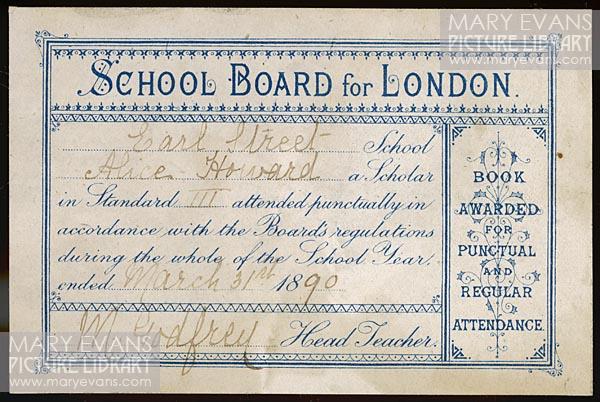 MARY EVANS
PICTURE LIBRARY
www.maryevans.com
SCHOOL BOARD for LONDON.
Earl Street School
Alice Howard a Scholar
in Standard III attended punctually in
accordance with the Board's regulations
during the whole of the School Year,
ended March 31st 1890
M Godfrey Head Teacher.
BOOK
AWARDED
FOR
PUNCTUAL
AND
REGULAR
ATTENDANCE.
MARY EVANS
PICTURE LIBRARY
www.maryevans.com
MARY EVANS
PICTURE LIBRARY
www.maryevans.com